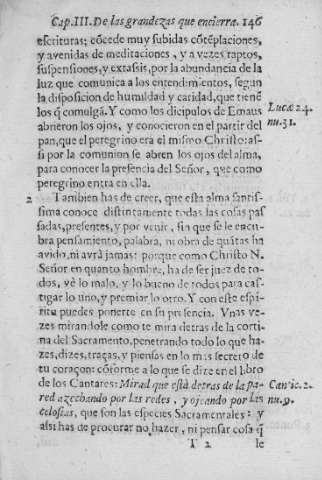 Cap. III. De las grandezas que encierra. 146
escrituras; cõcede muy subidas cõtẽplaciones,
y avenidas de meditaciones, y a vezes raptos,
suspensiones, y extassis, por la abundancia de la
luz que comunica a los entendimientos, segun
la disposicion de humildad y caridad, que tienẽ
los q̃ comulgã. Y como los dicipulos de Emaus
abrieron los ojos, y conocieron en el partir del
pan, que el peregrino era el mismo Christo: as-
si por la comunion se abren los ojos del alma,
para conocer la presencia del Señor, que como
peregrino entra en ella.
Lucæ 24.
nu. 31.
2 Tambien has de creer, que esta alma santis-
sima conoce distintamente todas las cosas pas
sadas, presentes, y por venir, sin que se le encu-
bra pensamiento, palabra, ni obra de quãtas ha
avido, ni avrà jamas: porque como Christo N.
Señor en quanto hombre, ha de ser juez de to-
dos, vè lo malo, y lo bueno de todos para cas-
tigar lo uno, y premiar lo otro. Y con este espi-
ritu puedes ponerte en su presencia. Vnas ve-
zes mirandole como te mira detras de la corti-
na del Sacramento, penetrando todo lo que ha-
zes, dizes, traças, y piensas en lo mas secreto de
tu coraçon: cõforme a lo que se dize en el libro
de los Cantares: Mirad que està detras de la pa-
red azechando por las redes, y ojeando por las
celosias, que son las especies Sacramentales: y
assi has de procurar no hazer, ni pensar cosa q̃
Cantic. 2.
nu. 9.
T 2 le